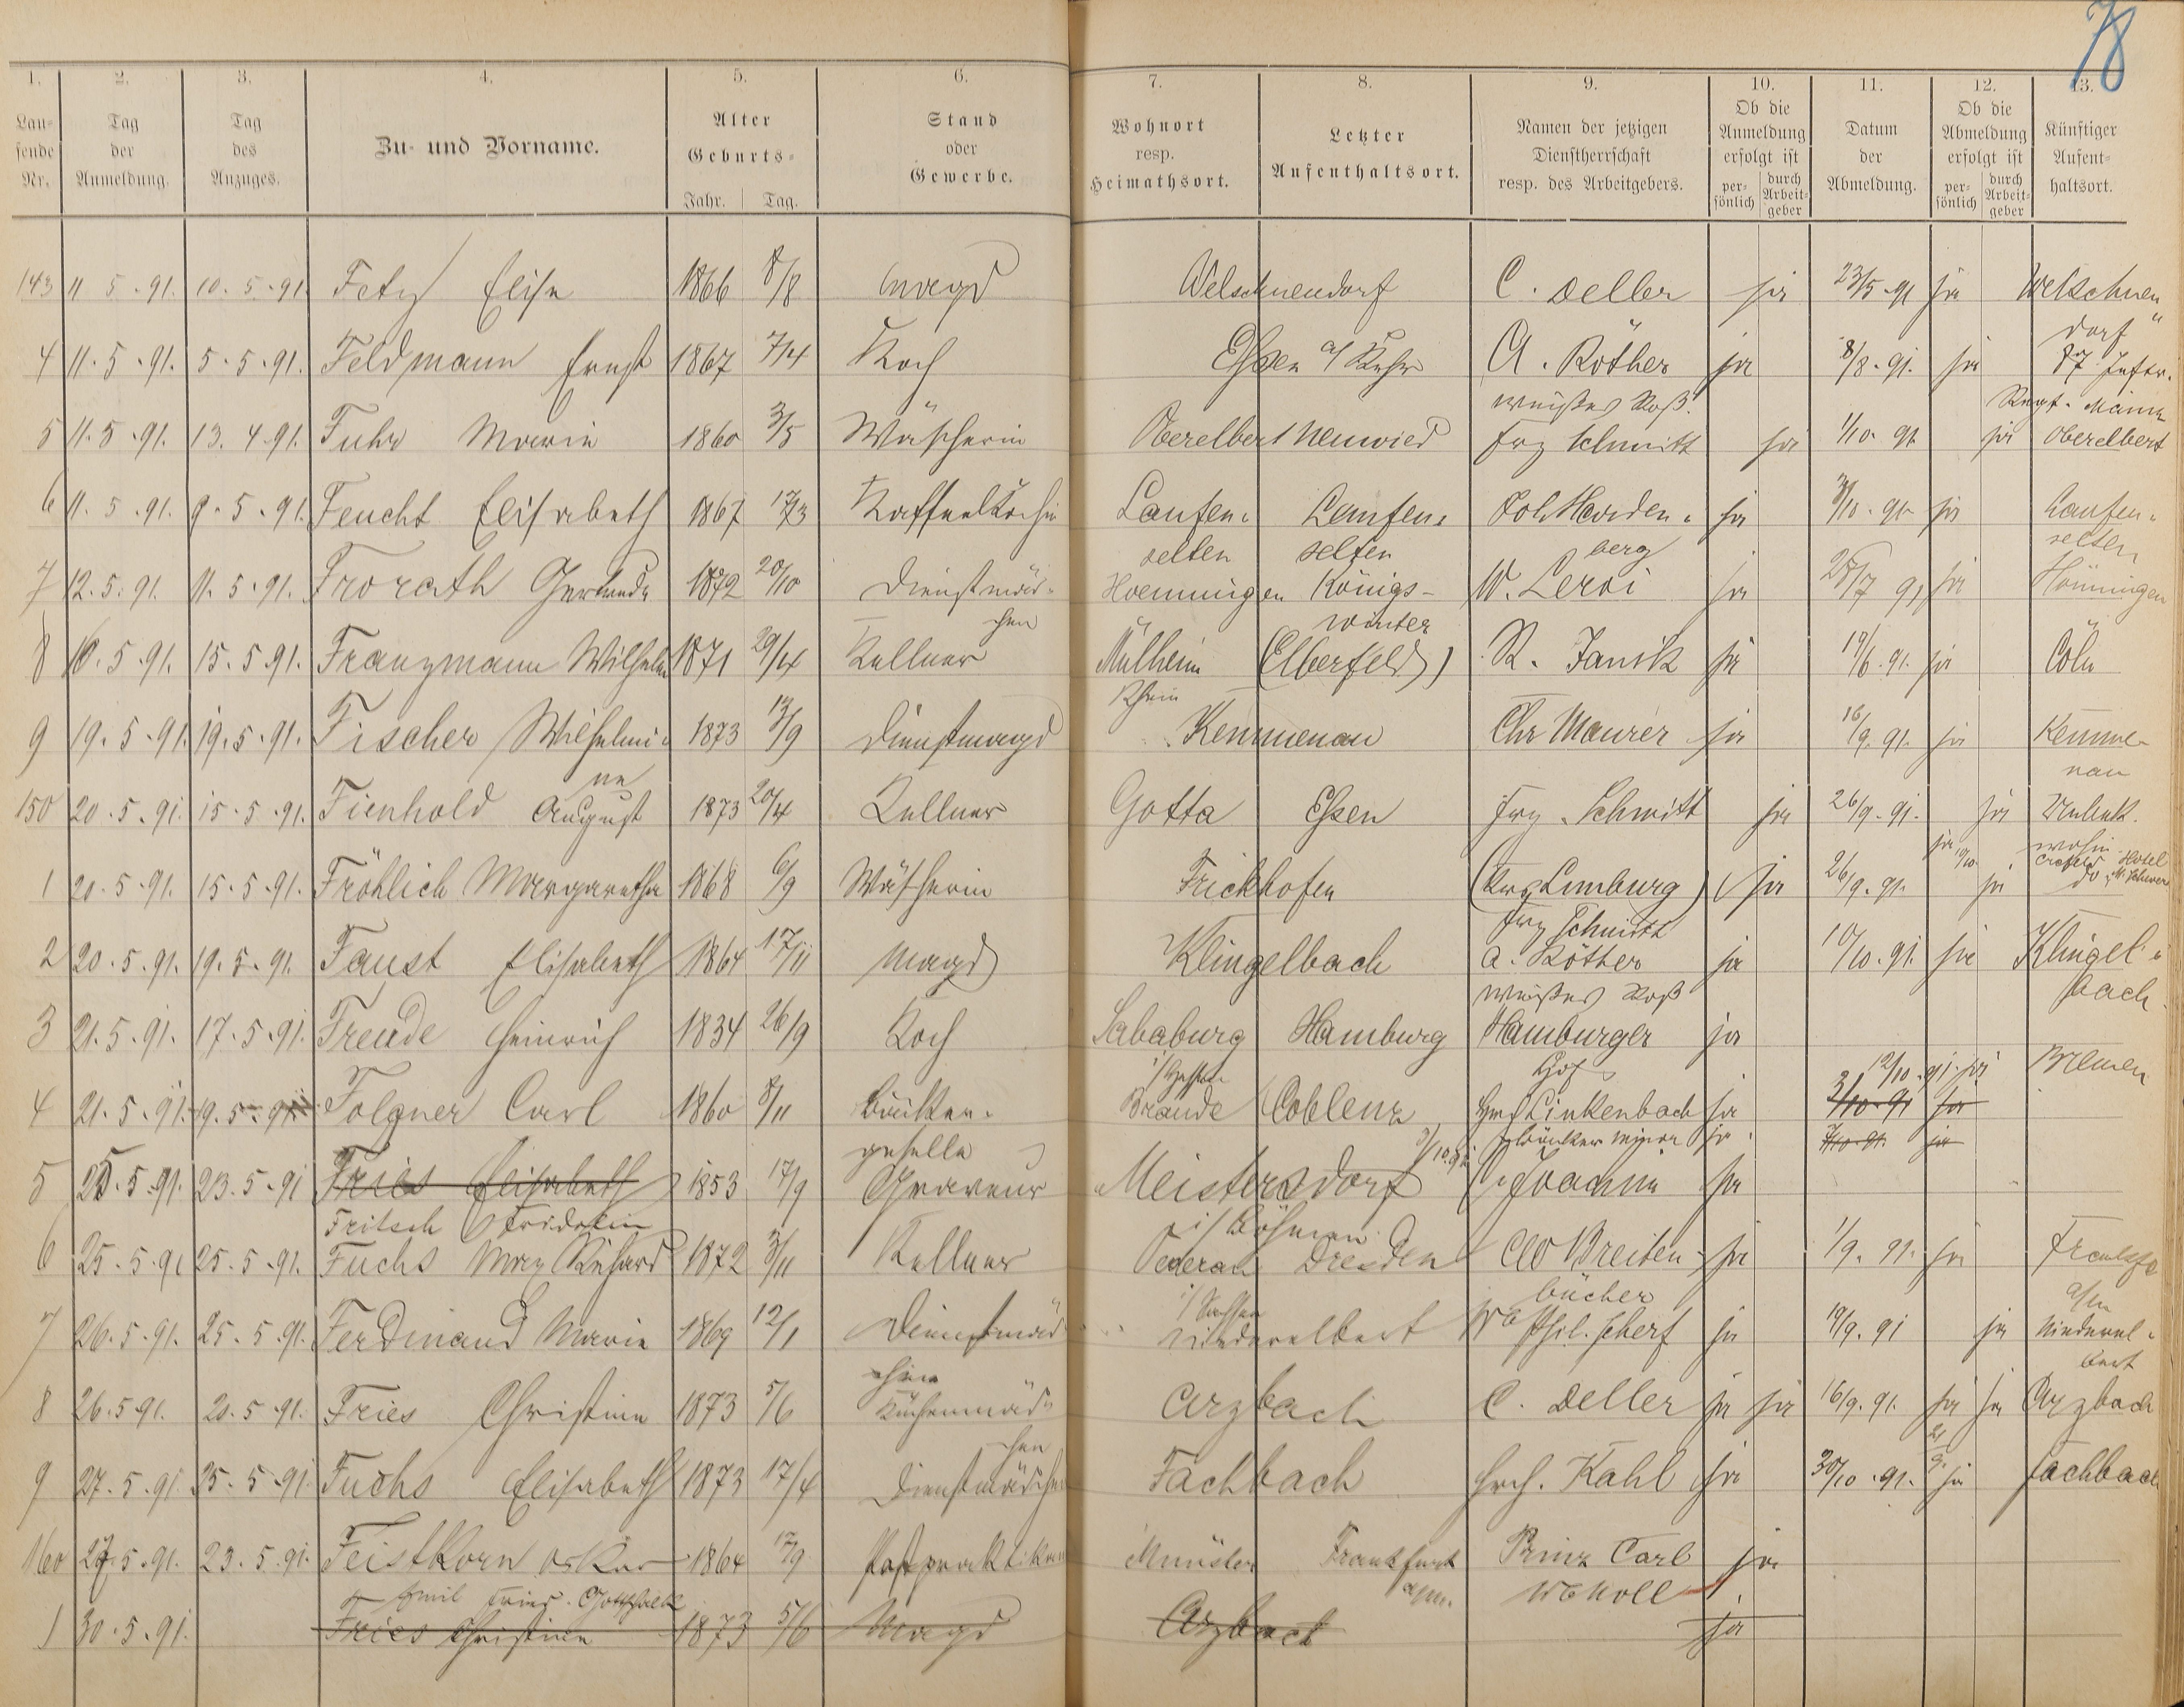 78
1. 2. 3. 4. 5. 6. 7. 8. 9. 10. 11. 12. 13.
Laufende Nr. Tag der Anmeldung. Tag des Anzuges. Zu- und Vorname. Alter Geburts- Jahr. Tag. Stand oder Gewerbe. Wohnort resp. Heimathsort. Letzter Aufenthaltsort. Namen der jetzigen Dienstherrschaft resp. des Arbeitgebers. Ob die Anmeldung erfolgt ist persönlich durch Arbeitgeber Datum der Abmeldung. Ob die Abmeldung erfolgt ist persönlich durch Arbeitgeber Künftiger Aufenthaltsort.
143 11 5.91. 10.5.91 Fetz Elise 1866 8/8 Magd Welschneudorf C. Deller ja 23/5.91 ja Welschneu
dorf
4 11.5.91. 5.5.91. Feldmann Ernst 1867 7/4 Koch Essen a/ Ruhr A. Röther ja 8/8.91. ja 87 Inftr.
weißes Roß. Regt. Mainz
5 11.5.91. 13.4.91. Fuhr Marie 1860 3/5 Wäscherin Oberelbert Neuwied Frz Schmitt ja 1/10.91 ja Oberelbert
6 11.5.91. 9.5.91. Feucht Elisabeth 1867 17/3 Kaffeeköchin Laufen- Laufen- Joh Harden- ja 3/10.91 ja Laufen-
selten selten berg selten
7 12.5.91. 11.5.91. Frorath Gertrude 1872 20/10 Dienstmäd- Hoenningen Königs- W. Leroi ja 25/7 91 ja Hönningen
chen winter
8 16.5.91. 15.5.91. Franzmann Wilhelm 1871 29/4 Kellner Mülheim (Elberfeld) R. Janik ja 19/6.91. ja Cöln
Rhein
9 19.5.91. 19.5.91. Fischer Wilhelmi- 1873 13/9 Dienstmagd Kemmenau Chr Maurer ja 16/9.91. ja Kemme-
ne nau
150 20.5.91. 15.5.91. Fienhold August 1873 20/4 Kellner Gotta Essen Frz. Schmitt ja 26/9.91. ja Unbek.
ja 10/10. wohin
1 20.5.91. 15.5.91. Fröhlich Margaretha 1868 6/9 Wäscherin Frickhofen (Krs Limburg) ja 26/9.91. ja do
Crefeld Hotel
Frz Schmitt
2 20.5.91. 19.5.91. Faust Elisabeth 1864 17/11 Magd Klingelbach A. Röther ja 10/10.91. ja Klingel-
weißes Roß bach
3 21.5.91. 17.5.91. Freude Heinrich 1834 26/9 Koch Sababurg Hamburg Hamburger ja
i/Hessen Hof 12/10.91. ja Bremen
4 21.5.91. 19.5.91. Folgner Carl 1860 8/11 Bäcker- Brande Coblenz Hr Linkenbach ja 3/10.91 ja
geselle ja 7/10.91. ja
5 25.5.91. 23.5.91 Fries Elisabeth 1853 17/9 Graveur Meistersdorf Joachim ja
Fritsch Fridolin i/Böhmen
6 25.5.91 25.5.91. Fuchs Max Richard 1872 3/11 Kellner Oederan Dresden Breiten- ja 1/9.91. ja
i/Sachsen bücher a/M
7 26.5.91. 25.5.91. Ferdinand Marie 1869 12/1 Dienstmäd- Niederelbert Phil. Scherf ja 19/9.91 ja Niederel-
chen bert
8 26.5.91. 20.5.91. Fries Christine 1873 5/6 Küchenmäd- Arzbach C. Deller ja ja 16/9.91. ja ja Arzbach
chen
9 27.5.91. 25.5.91 Fuchs Elisabeth 1873 17/4 Dienstmädchen Fachbach Hch. Kahl ja 30/10.91. ja Fachbach
160 27.5.91. 23.5.91. Feistkorn Oskar 1864 17/9 Postpraktikant Münster Frankfurt Prinz Carl ja
Emil Fries. Gottfried a/M. ja
1 30.5.91. Fries Christine 1873 5/6 Magd Arzbach ja